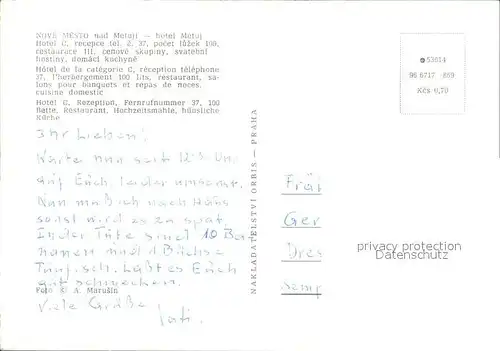 NOVÉ MĚSTO nad Metují — hotel Metuj
Hotel C, recepce tel. č. 37, počet lůžek 100,
restaurace III. cenové skupiny, svatební
hostiny, domácí kuchyně
Hôtel de la catégorie C, réception téléphone
37, l'herbergement 100 lits, restaurant, sa-
lons pour banquets et repas de noces,
cuisine domestic
Hotel C. Rezeption, Fernrufnummer 37, 100
Bette, Restaurant, Hochzeitsmahle, häusliche
Küche
Ihr Lieben!
Warte nun seit 12³ Uhr
auf Euch, leider umsonst.
Nun muß ich nach Haus
sonst wird es zu spät.
In der Tüte sind 10 Ba
nanen und 1 Büchse
Laßt es Euch
gut schmecken.
Foto © A. Marušin
Viele Grüße
NAKLADATELSTVÍ ORBIS — PRAHA
53614
Kčs 0,70
Frä
Ger
Dres
Semp
privacy protection
Datenschutz